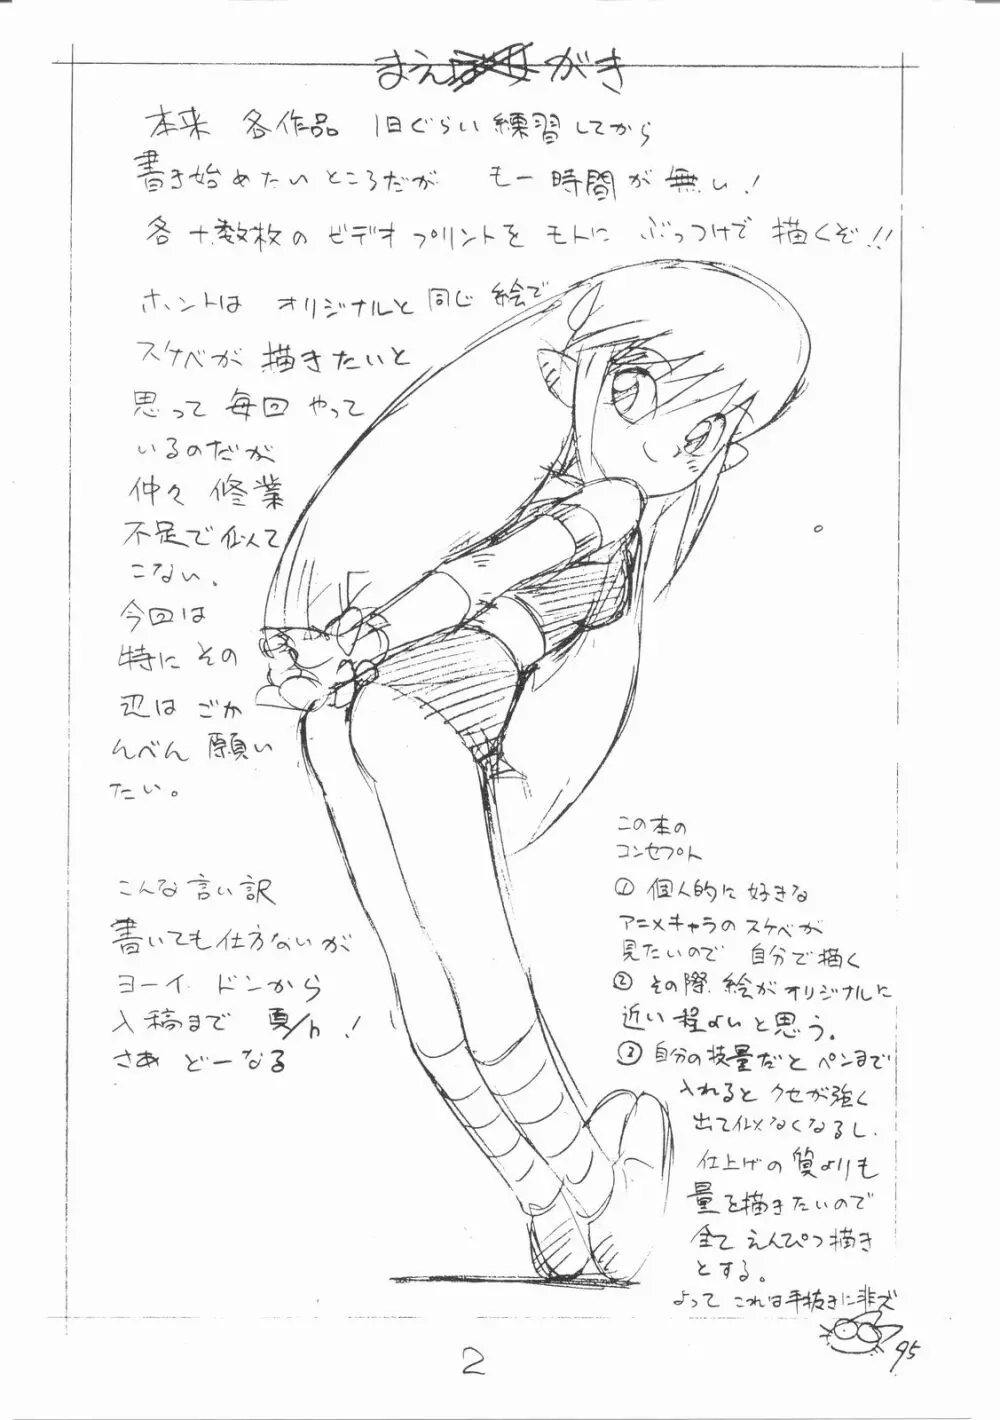 まえがき
本来 各作品 1日ぐらい練習してから
書き始めたいところだが もー時間が無い!
各十数枚のビデオプリントをモトに ぶっつけで描くぞ!!
ホントは オリジナルと同じ絵で
スケベが描きたいと
思って毎回やって
いるのだが
仲々修業
不足で似て
こない.
今回は
特にその
辺はごか
んべん願い
たい。
こんな言い訳
書いても仕方ないが
ヨーイ ドンから
入稿まで !
さあ どーなる
この本の
コンセプト
① 個人的に好きな
アニメキャラのスケベが
見たいので 自分で描く
② その際 絵がオリジナルに
近い程よいと思う。
③ 自分の技量だとペンまで
入れるとクセが強く
出て似なくなるし.
仕上げの質よりも
量を描きたいので
全てえんぴつ描き
とする。
よって これは手抜きに非ズ
95
2